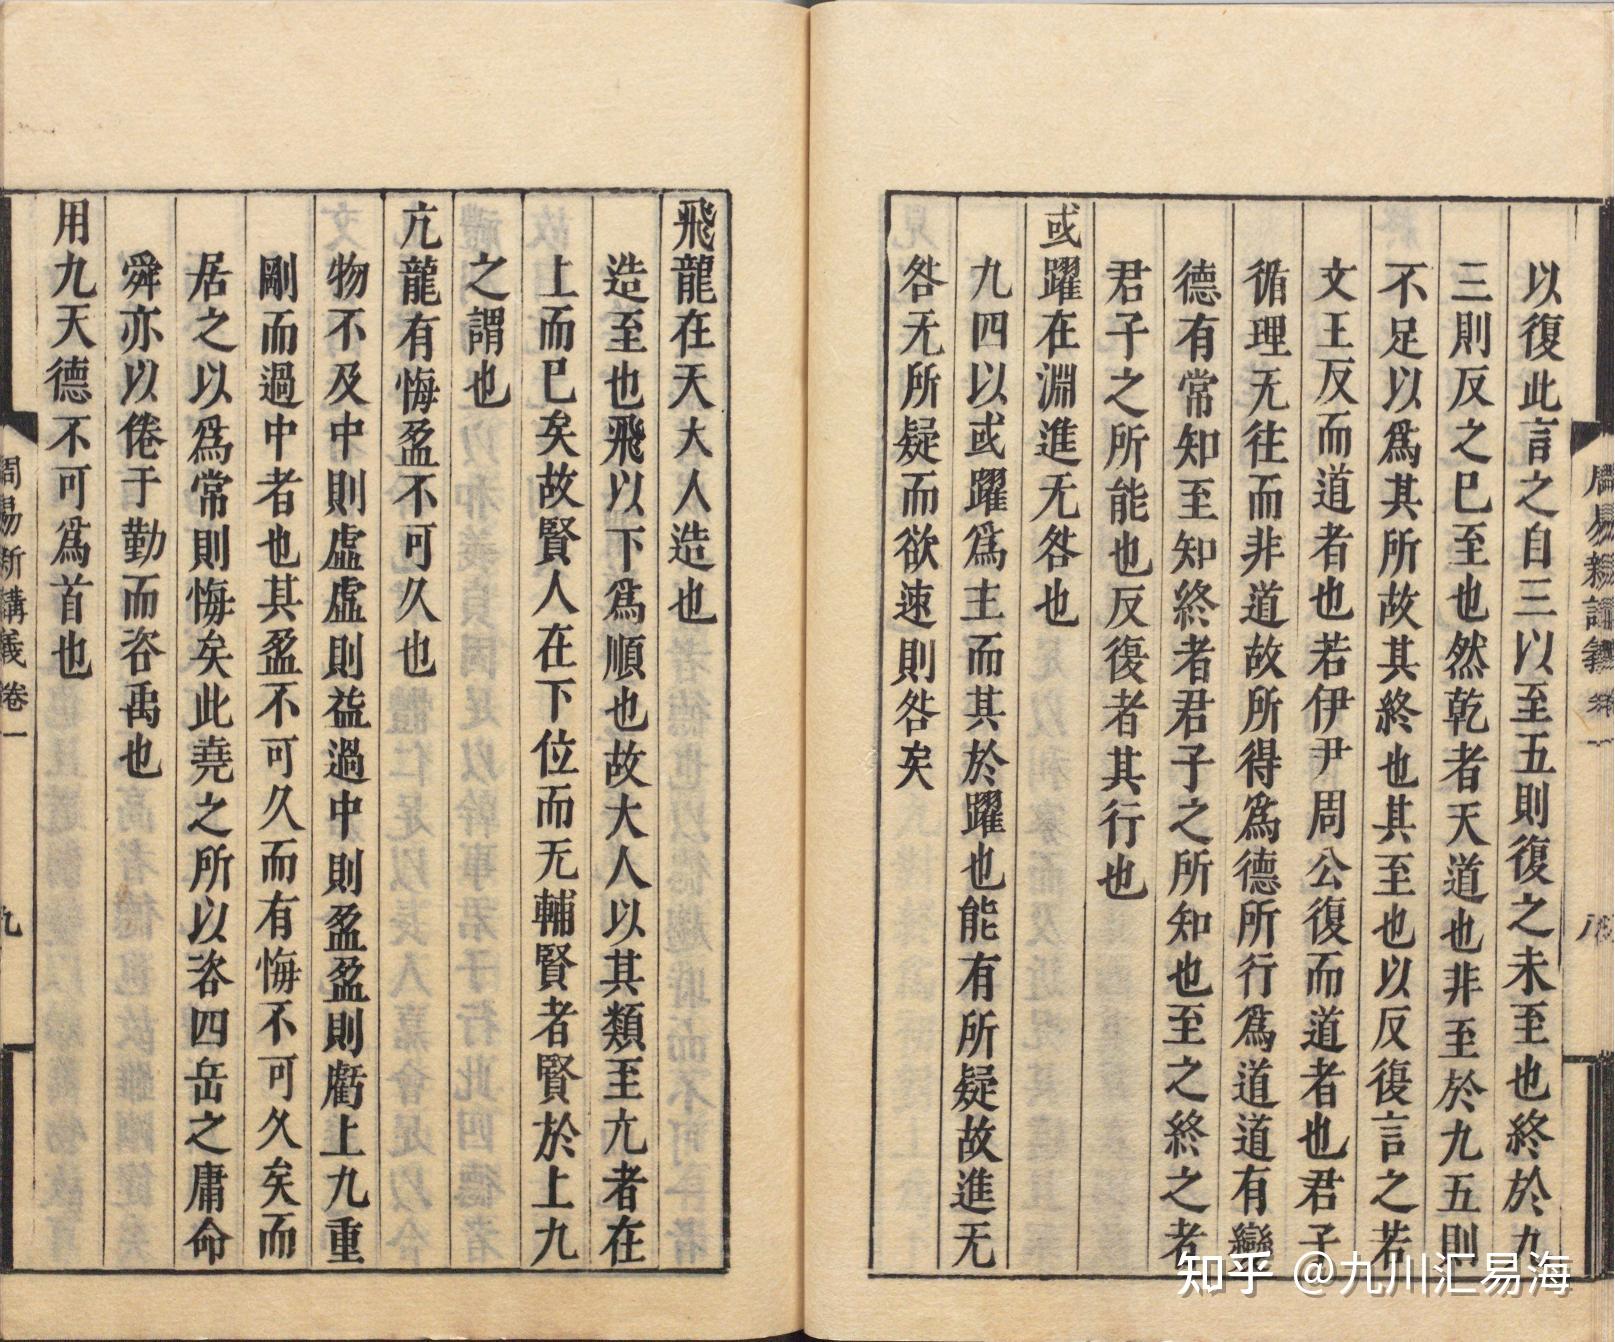 以復此言之自三以至五則復之未至也終於九
三則反之已至也然乾者天道也非至於九五則
不足以爲其所故其終也其至也以反復言之若
文王反而道者也若伊尹周公復而道者也君子
循理无往而非道故所得爲德所行爲道道有變
德有常知至知終者君子之所知也至之終之者
君子之所能也反復者其行也
或躍在淵進无咎也
九四以或躍爲主而其於躍也能有所疑故進无
咎无所疑而欲速則咎矣
周易新講義 卷一
八
飛龍在天大人造也
造至也飛以下爲順也故大人以其類至亢者在
上而已矣故賢人在下位而无輔賢者賢於上九
之謂也
亢龍有悔盈不可久也
物不及中則虛虛則益過中則盈盈則虧上九重
剛而過中者也其盈不可久而有悔不可久矣而
居之以爲常則悔矣此堯之所以咨四岳之庸命
舜亦以倦于勤而咨禹也
用九天德不可爲首也
周易新講義 卷一
九
知乎 @九川汇易海